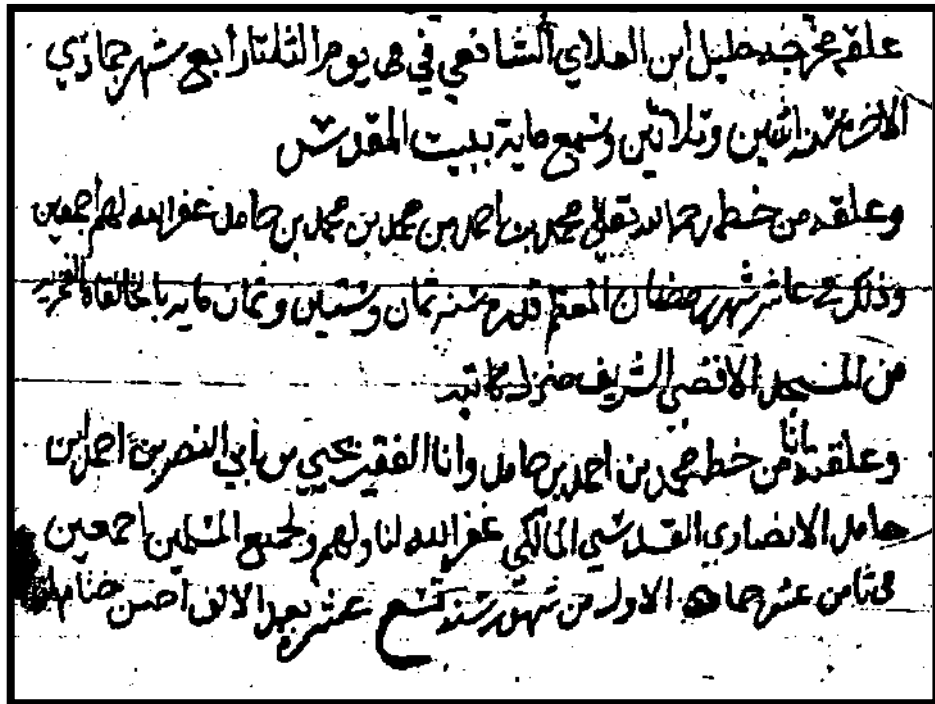 علقه مخرجه خليل ابن العلاي الشافعي في يوم الثلثا رابع شهر جمادي
الاخر سنة اثنين وثلاثين وسبع ماية ببيت المقدس
وعلقه من خطه رحمه الله تعالى محمد بن احمد بن محمد بن محمد بن حامد غفر الله لهم اجمعين
وذلك في عاشر شهر رمضان المعظم قدره سنة ثمان وستين وثمان ماية بالخانقاه الفخرية
من المسجد الاقصى الشريف منزل كاتبه
وعلقه ثانيا من خط محمد بن احمد بن حامد وانا الفقير يحيى بن أبي النصر بن احمد ابن
حامد الانصاري القدسي المالكي غفر الله لنا ولهم ولجميع المسلمين اجمعين
في ثامن عشر جماد الاول من شهور سنة تسع عشر بعد الالف احسن ختامها